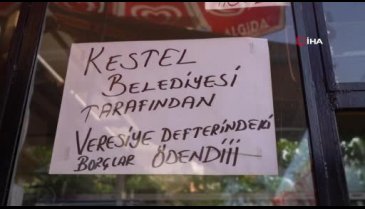 ALGIDA
İHA
KESTEL
BELEDİYESİ
TARAFINDAN
VERESİYE DEFTERİNDEKİ
BORÇLAR ÖDENDİİİ